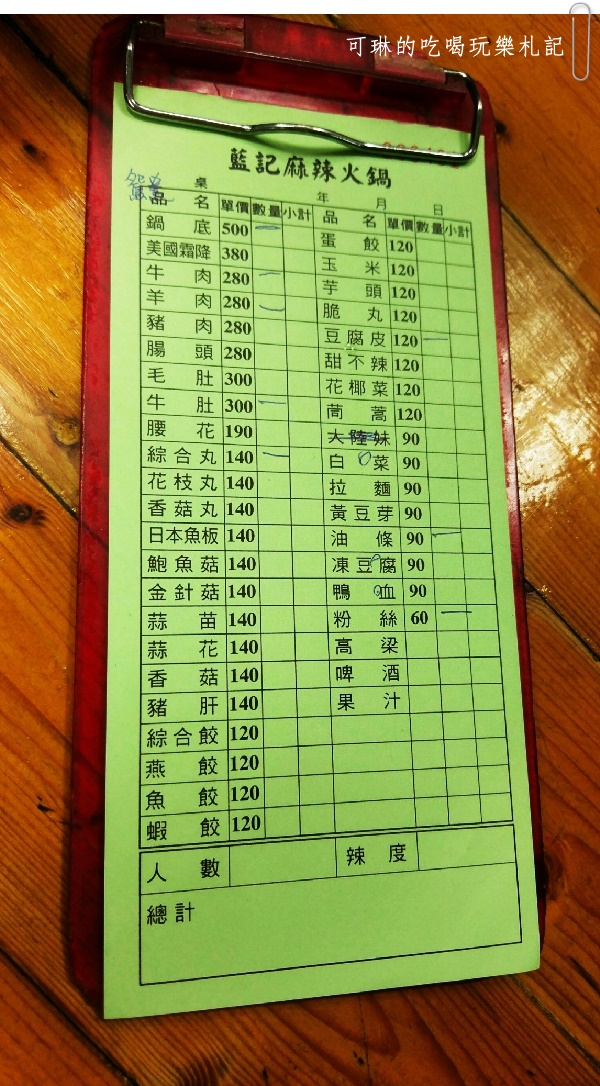 可琳的吃喝玩樂札記
藍記麻辣火鍋
鴛鴦
桌 年 月 日
品名 單價 數量 小計 品名 單價 數量 小計
鍋底 500 一 蛋餃 120
美國霜降 380 玉米 120
牛肉 280 一 芋頭 120
羊肉 280 一 脆丸 120
豬肉 280 豆腐皮 120 一
腸頭 280 甜不辣 120
毛肚 300 花椰菜 120
牛肚 300 一 茼蒿 120
腰花 190 大陸妹 90
綜合丸 140 一 白菜 90
花枝丸 140 拉麵 90
香菇丸 140 黃豆芽 90
日本魚板 140 油條 90 一
鮑魚菇 140 凍豆腐 90
金針菇 140 鴨血 90
蒜苗 140 粉絲 60 一
蒜花 140 高梁
香菇 140 啤酒
豬肝 140 果汁
綜合餃 120
燕餃 120
魚餃 120
蝦餃 120
人數 辣度
總計